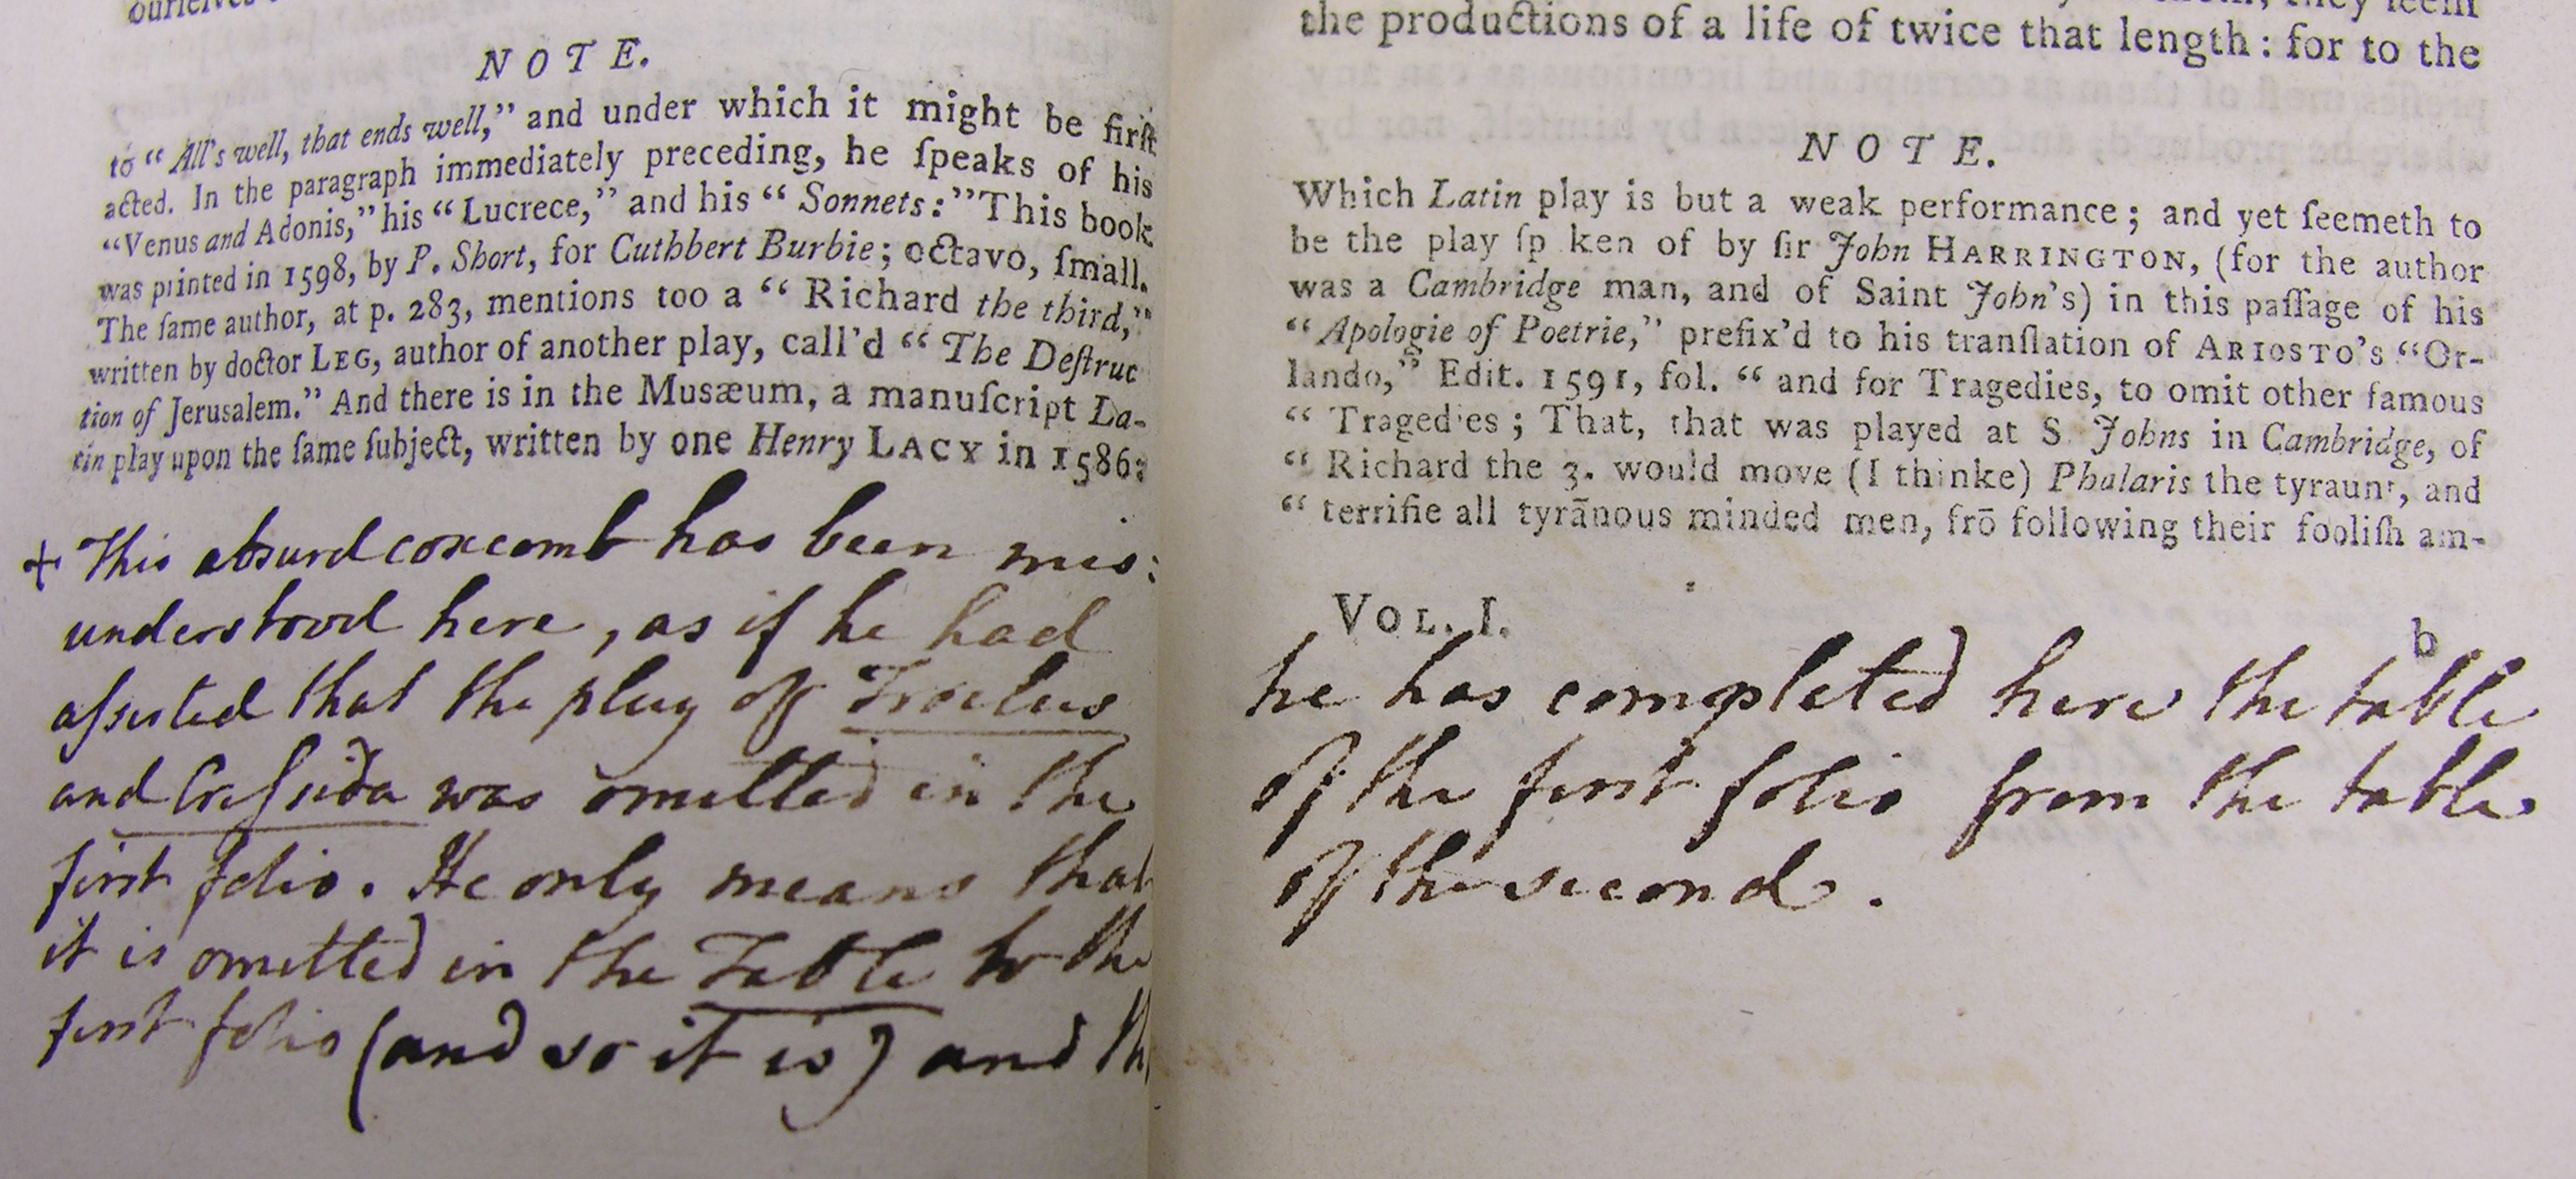 NOTE.
to “ All's well, that ends well,” and under which it might be firſt
acted. In the paragraph immediately preceding, he ſpeaks of his
“Venus and Adonis,” his “ Lucrece,” and his “ Sonnets:” This book
was printed in 1598, by P. Short, for Cuthbert Burbie; octavo, ſmall.
The ſame author, at p. 283, mentions too a “ Richard the third,”
written by doctor LEG, author of another play, call'd “ The Deſtruc
tion of Jeruſalem.” And there is in the Muſæum, a manuſcript La-
tin play upon the ſame ſubject, written by one Henry LACY in 1586:
+ This absurd coxcomb has been mis:
understood here, as if he had
aſserted that the play of Troilus
and Creſsida was omitted in the
first folio. He only means that
it is omitted in the Table to the
first folio (and so it is) and th
the productions of a life of twice that length: for to the
NOTE.
Which Latin play is but a weak performance; and yet ſeemeth to
be the play ſp ken of by ſir John HARRINGTON, (for the author
was a Cambridge man, and of Saint John's) in this paſſage of his
“ Apologie of Poetrie,” prefix'd to his tranſlation of ARIOSTO'S “Or-
lando,” Edit. 1591, fol. “ and for Tragedies, to omit other famous
“ Tragedies; That, that was played at S Johns in Cambridge, of
“ Richard the 3. would move (I thinke) Phalaris the tyraunt, and
“ terrifie all tyrãnous minded men, frō following their fooliſh am-
VOL. I. b
he has completed here the table
of the first folio from the table
of the second.